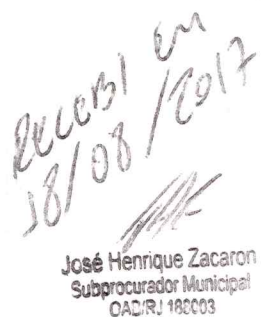 RECEBI em
18/08/2017
José Henrique Zacaron
Subprocurador Municipal
OAB/RJ 188003